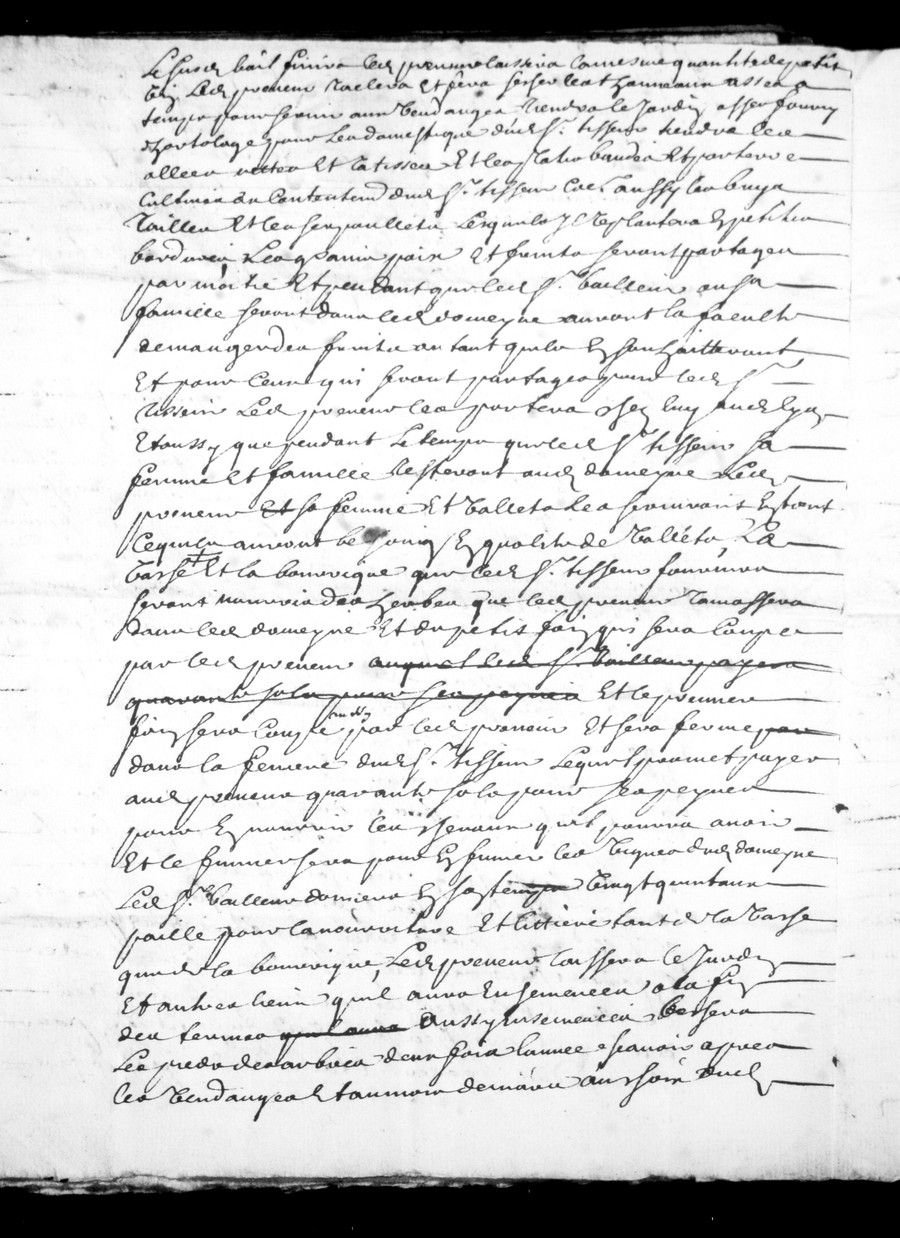 Le susd bail finira led preneur laissera la mesme quantité de petit
led preneur et fera
temps pour servir aux vendanges tiendra le Jardin asses fourny
d'hortolage pour les domestiques dud Sr tisseur tiendra les
allees nettes et la tissee et les platte bandes et parterre
cultives au contentemt dud Sr tisseur Coe aussy les buys
tailles et les lesquels Il replantera En petites
bordures Les grains pois et fruits seront partages
par moitie Et pendant que led Sr bailleur ou sa
famille seront dans led domeyne auront la faculté
de manger des fruits autant quils En souhaitteront
Et pour Ceux qui seront partages pour led Sr
tisseur Led preneur les portera chez luy aud lyon
Et aussy que pendant Le temps que led Sr tisseur sa
femme Et famille resteront aud domeyne Led
preneur Et sa femme Et Valletz les serviront En tout
Ce quils auront besoing En qualité de Valletz, La
Vasse Et la bourrique que led Sr tisseur fournira
seront nourris des herbes que led preneur ramassera
dans led domeyne Et du petit foin qui sera Coupe
par led preneur auquel led Sr bailleur payera
quarante sols pour ses peynes Et le premier
foin sera Coupe aussy par led preneur Et sera ferme par
dans la feniere dud Sr tisseur Lequel promet payer
aud preneur quarante sols pour ses peynes
pour En nourrir les chevaux quil pourra avoir
Et le fumier sera pour En fumer les vignes dud domeyne
Led Sr bailleur donnera En son temps Vingt quintaux
paille pour la nourriture Et littiere tant de la Vasse
que de la bourrique, Led preneur laissera le Jardin
Et autres lieux quil aura Ensemences a la fin
des termes quil aura Aussy ensemences Beschera
Les pieds des arbres deux fois l'annee scavoir apres
les Vendanges Et au mois de mars au choix dud